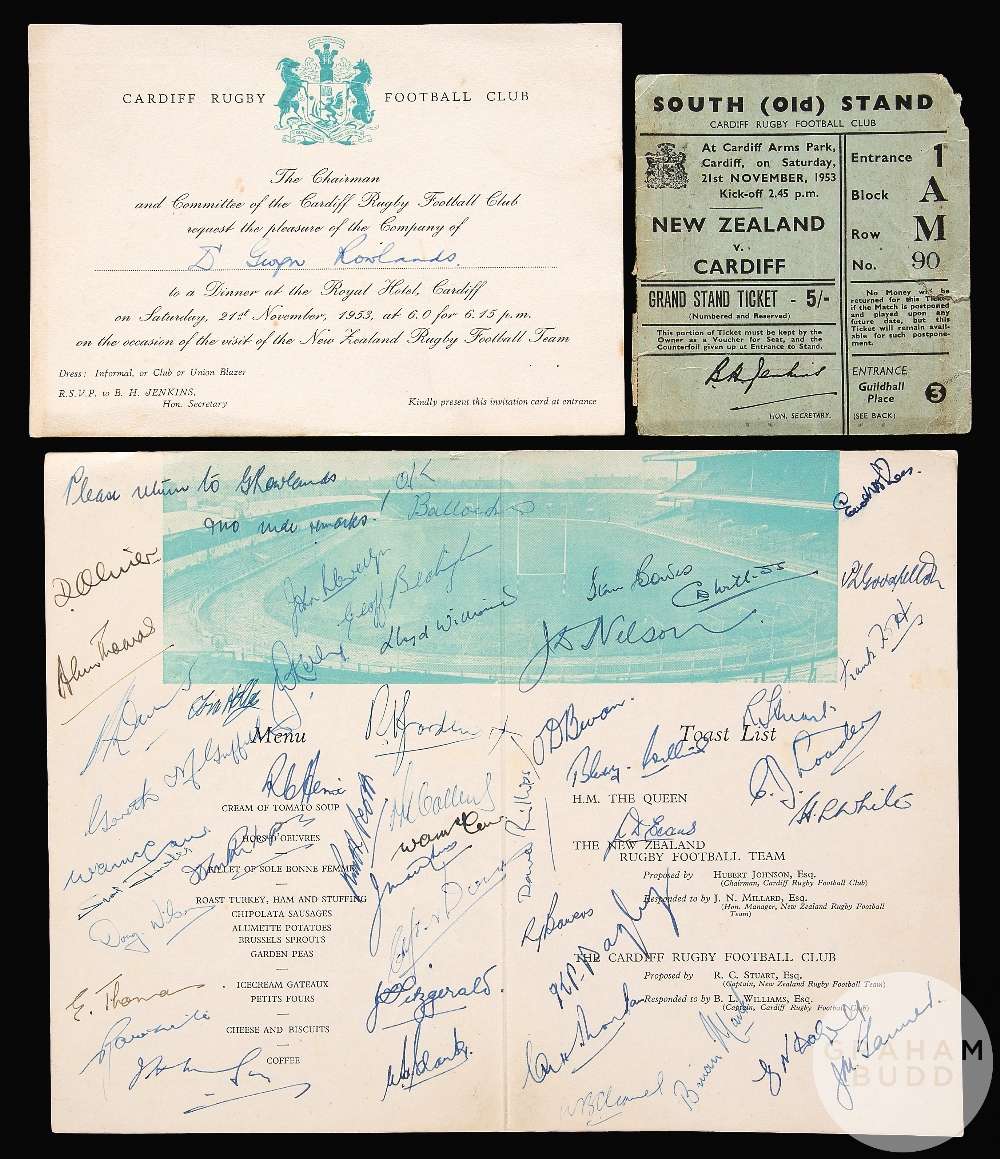 CARDIFF RUGBY FOOTBALL CLUB
The Chairman
and Committee of the Cardiff Rugby Football Club
request the pleasure of the Company of
Dr Gwyn Rowlands.
to a Dinner at the Royal Hotel, Cardiff
on Saturday, 21st November, 1953, at 6.0 for 6.15 p.m.
on the occasion of the visit of the New Zealand Rugby Football Team
Dress: Informal, or Club or Union Blazer
R.S.V.P. to B. H. JENKINS,
Hon. Secretary
Kindly present this invitation card at entrance
SOUTH (Old) STAND
CARDIFF RUGBY FOOTBALL CLUB
At Cardiff Arms Park,
Cardiff, on Saturday,
21st NOVEMBER, 1953
Kick-off 2.45 p.m.
NEW ZEALAND
v.
CARDIFF
GRAND STAND TICKET - 5/-
(Numbered and Reserved)
This portion of Ticket must be kept by the
Owner as a Voucher for Seat, and the
Counterfoil given up at Entrance to Stand.
B. H. Jenkins
HON. SECRETARY.
Entrance 1
Block A
Row M
No. 90
No Money will be
returned for this Ticket
if the Match is postponed
and played upon any
future date, but this
Ticket will remain avail-
able for such postpone-
ment.
ENTRANCE
Guildhall
Place 3
(SEE BACK)
Please return to G Rowlands
no rude remarks! O/K
John Llewellyn
Geoff Beckingham
Lloyd Williams
Stan Bowes
C D Williams
J D Nelson
Alun Thomas
Gareth Griffiths
R C Hemi
W A McCaw
Doug Wilson
E. Thomas
J Fitzgerald.
W H Clark
David Phillips
C D Bevan.
Bleddyn Williams
R Stuart
C. J. Loader
H L White
D Evans
R Bowers
K P Bagley
Brian Mark
Menu
CREAM OF TOMATO SOUP
HORS D'OEUVRES
FILLET OF SOLE BONNE FEMME
ROAST TURKEY, HAM AND STUFFING
CHIPOLATA SAUSAGES
ALUMETTE POTATOES
BRUSSELS SPROUTS
GARDEN PEAS
ICECREAM GATEAUX
PETITS FOURS
CHEESE AND BISCUITS
COFFEE
Toast List
H.M. THE QUEEN
THE NEW ZEALAND
RUGBY FOOTBALL TEAM
Proposed by HUBERT JOHNSON, ESQ.
(Chairman, Cardiff Rugby Football Club)
Responded to by J. N. MILLARD, ESQ.
(Hon. Manager, New Zealand Rugby Football
Team)
THE CARDIFF RUGBY FOOTBALL CLUB
Proposed by R. C. STUART, ESQ.
(Captain, New Zealand Rugby Football Team)
Responded to by B. L. WILLIAMS, ESQ.
(Captain, Cardiff Rugby Football Club)
GRAHAM
BUDD